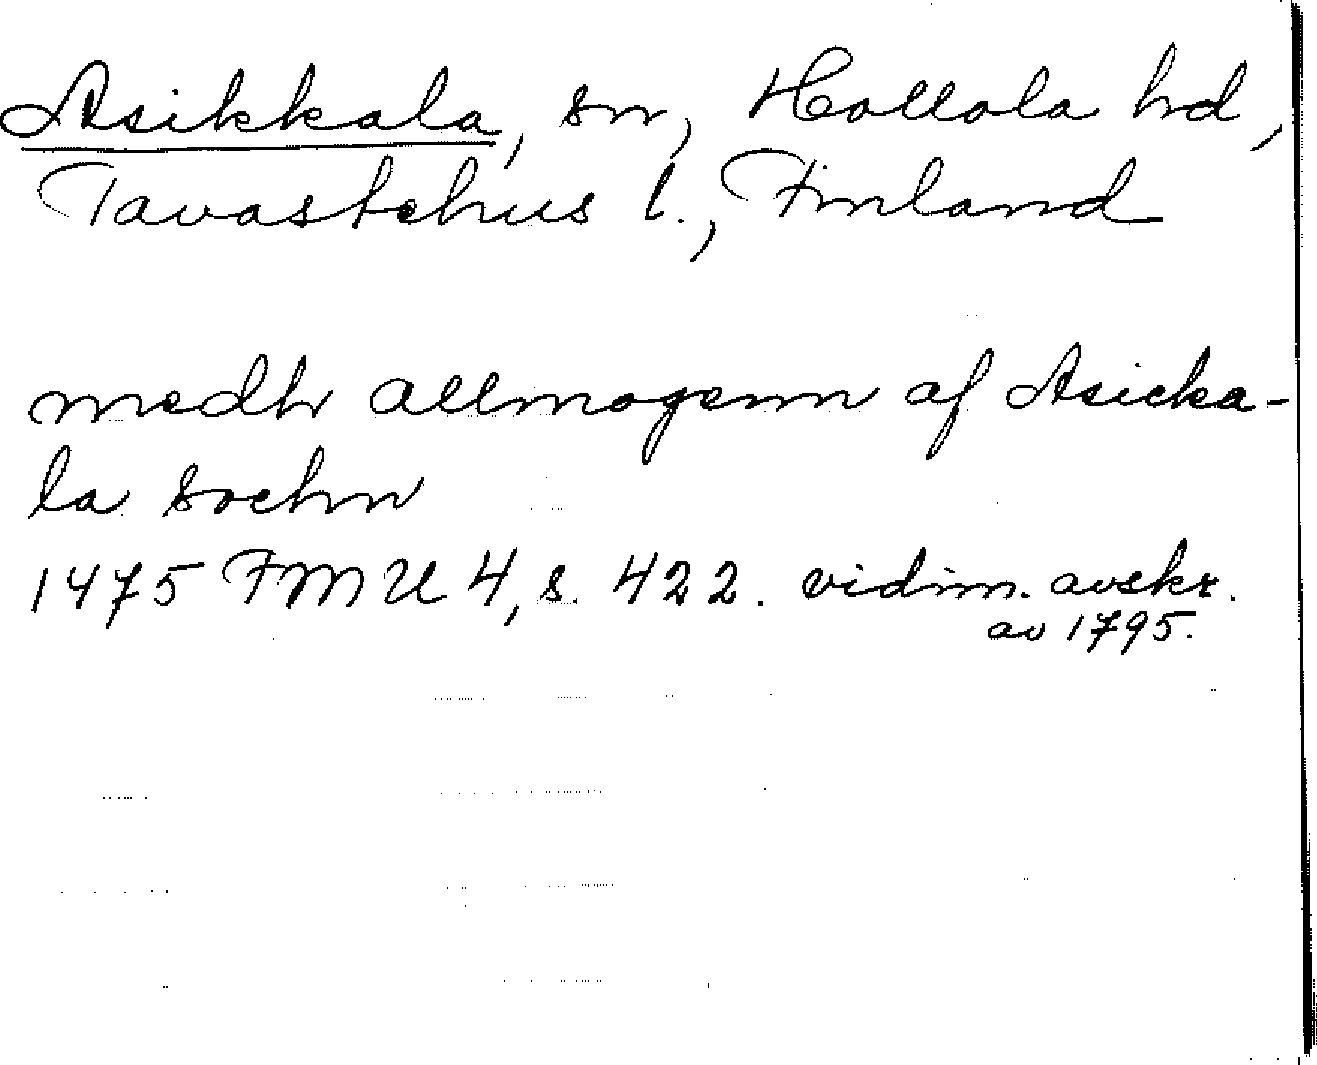 Asikkala, sn, Hollola hd,
Tavastehus l., Finland
medh allmogenn af Asicka-
la sochn
1475 FMU 4, s. 422. vidim. avskr.
av 1795.